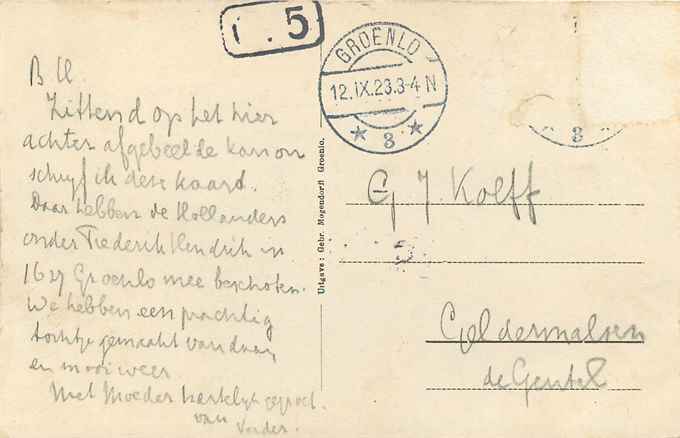 5
GROENLO
12.IX.23.3-4 N
3
3
B
Zittend op het hier
achter afgebeelde kanon
schrijf ik deze kaard.
Daar hebben de Hollanders
onder Frederik Hendrik in
1627 Groenlo mee beschoten.
We hebben een prachtig
tochtje gemaakt vandaag
en mooi weer.
Met Moeder hartelijk gegroet.
van
Vader.
Uitgave: Gebr. Mogendorff Groenlo.
G J. Kolff
Geldermalsen
de